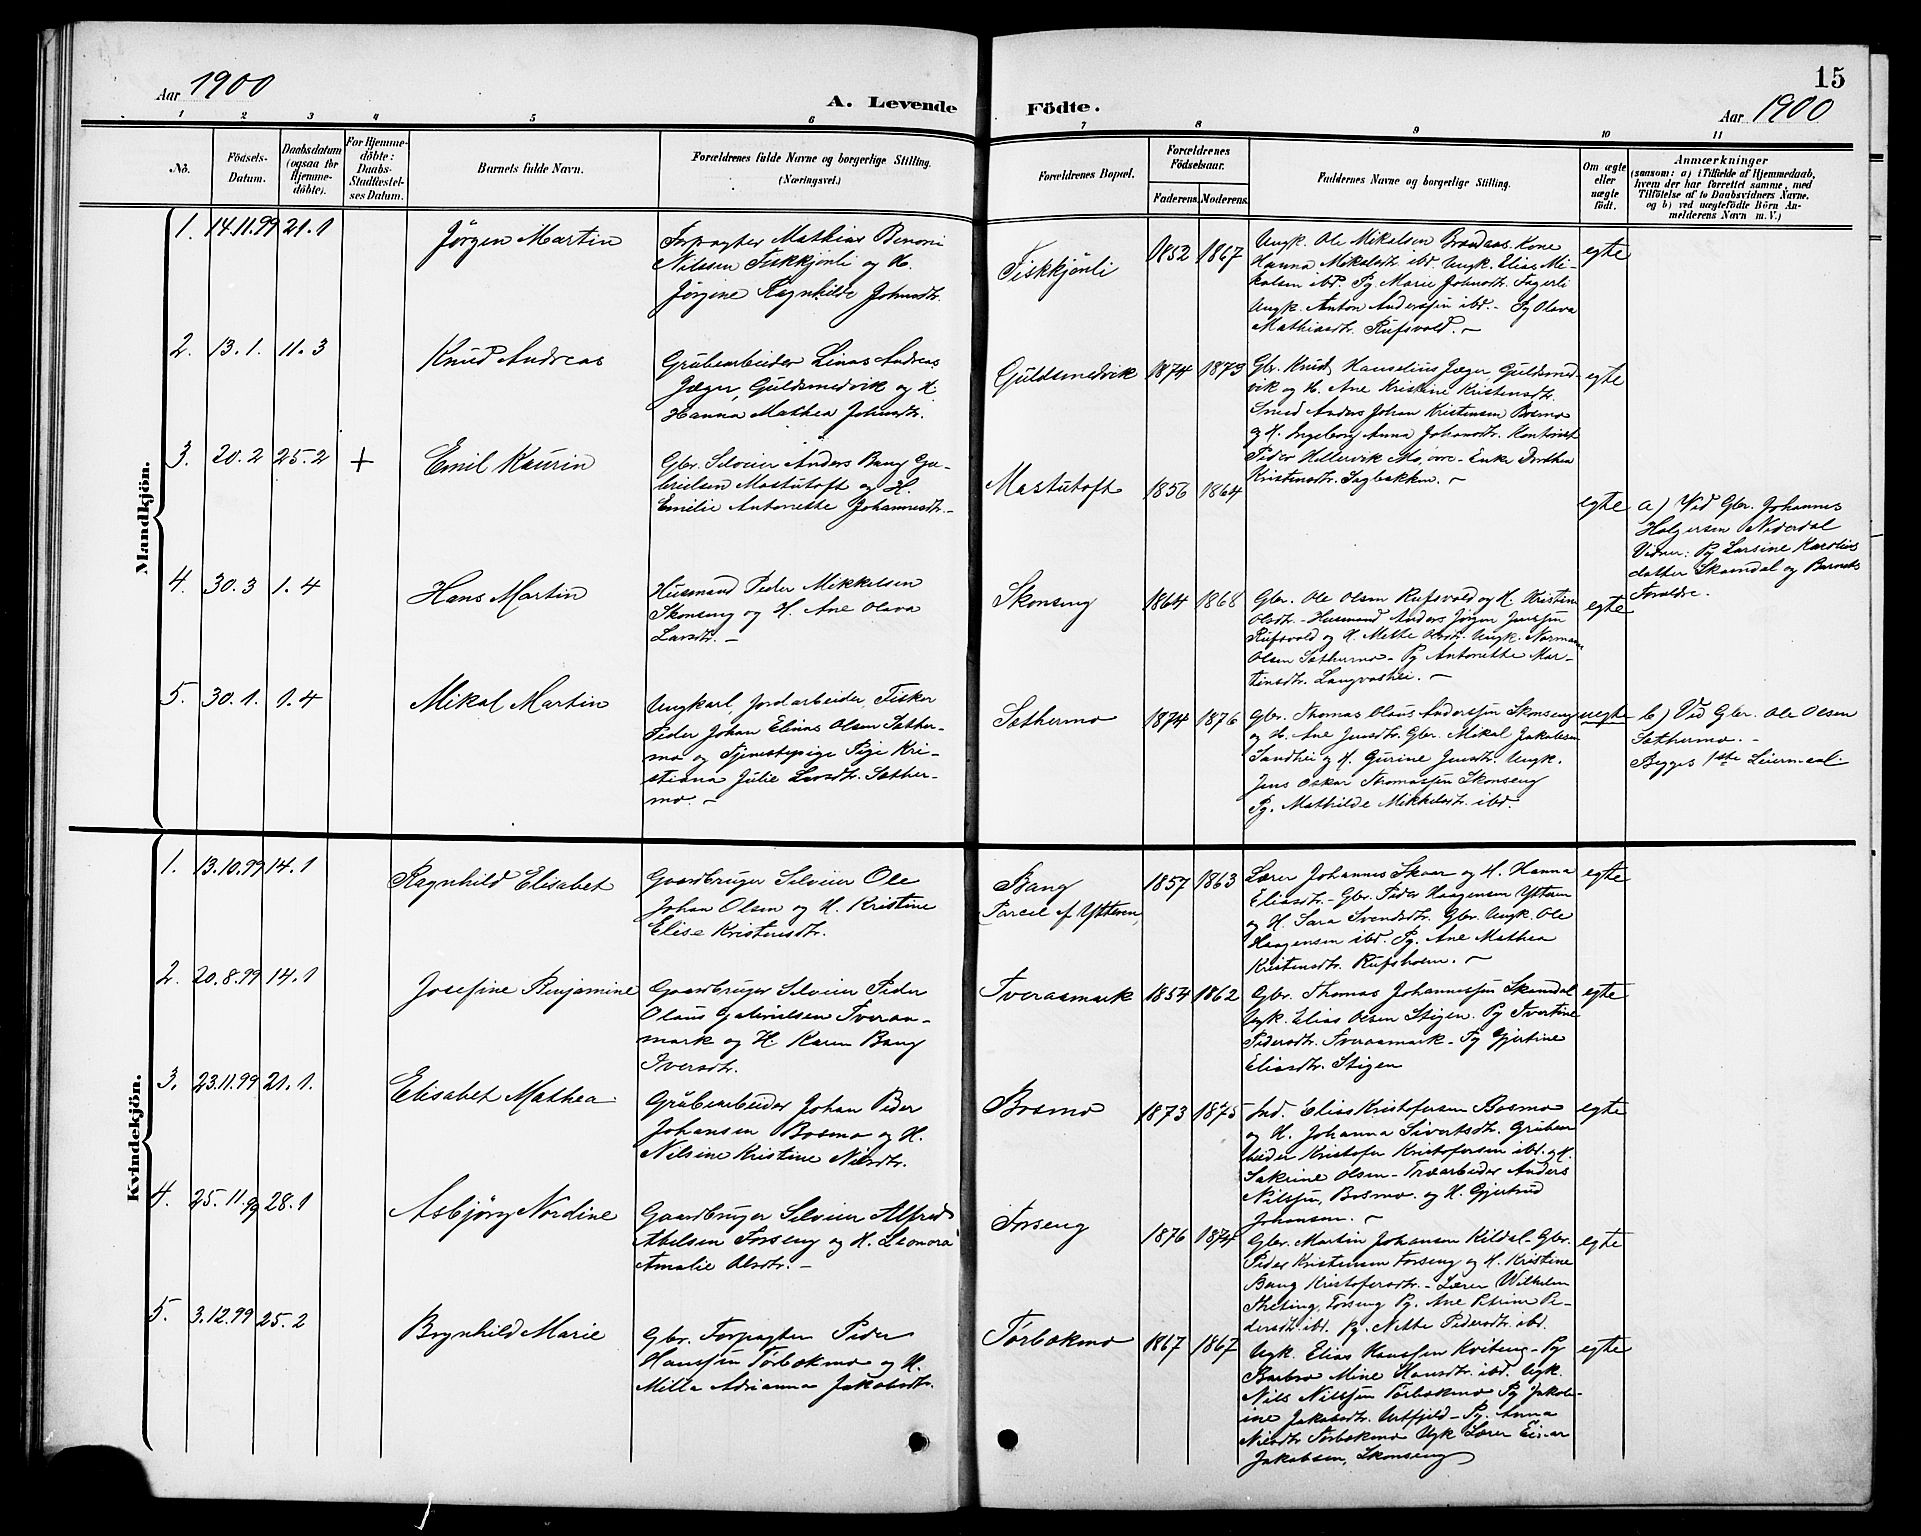 Aar 1900
A. Levende
Födte.
15
Aar 1900
1 2 3 4 5 6 7 8 9 10 11
No.
Födsels-
Datum.
Daabsdatum
(ogsaa for
Hjemme-
döbte).
For Hjemme-
döbte:
Daabs-
Stadfæstel-
ses Datum.
Barnets fulde Navn.
Forældrenes fulde Navne og borgerlige Stilling.
(Næringsvei.)
Forældrenes Bopæl.
Forældrenes
Födselsaar.
Faderens. Moderens.
Faddernes Navne og borgerlige Stilling.
Om ægte
eller
uægte
født.
Anmærkninger
(saasom: a) i Tilfælde af Hjemmedaab,
hvem der har forrettet samme, med
Tilföielse af to Daabsvidners Navne,
og b) ved uægtefödte Börn An-
melderens Navn m. V.)
Mandkjön.
1. 14.11.99 21.1
Jørgen Martin
Forpagter Mathias Benoni
Nilssen Fiskkjønli og H.
Jørgine Ragnhilde Johnsdtr.
Fiskkjönli
1852 1867
Ungk. Ole Mikalsen Brandaas. Kone
Hanna Mikalsdtr. ibd. Ungk. Elias Mi-
kalsen ibd. Pg Marie Johnsdtr. Fagerli
Ungk. Anton Anderssen ibd. - Pg Olava
Mathiasdtr. Rufsvold. -
egte
2. 13.1. 11.3
Knud Andreas
Grubearbeider Linas Andreas
Jæger, Guldsmedvik og H.
Hanna Mathea Johnsdtr.
Guldsmedvik
1874 1873
Gbr. Knud Hanselius Jæger Guldsmed-
vik og H. Ane Kristine Kristensdtr.
Smed Anders Johan Kristensen Bosmo
og H. Ingeborg Anna Johansdtr. Kontorist
Peder Hellervik Mo, Enke Dorthea
Kristensdtr. Sagbakken. -
egte
3. 20.2 25.2 +
Emil Kaurin
Gbr. Selveier Anders Bang Ga-
brielsen Mastutoft og H.
Emilie Antonette Johannesdtr. -
Mastutoft
1856 1864
egte
a) Ved Gbr. Johannes
Holgersen Nederdal
Vidner: Pg Larsine Karolius
datter Skamdal og Barnets
Forældre.
4. 30.3 1.4
Hans Martin
Husmand Peder Mikkelsen
Skonseng og H. Ane Olava
Larsdtr. -
Skonseng
1864 1868
Gbr. Ole Olsen Rufsvold og H. Kristine
Olsdtr. - Husmand Anders Jörgen Jenssen
Rufsvold og H. Mette Olsdtr. Ungk. Norman
Olsen Sæthermo - Pg Antonette Mar-
tinsdtr. Langvashei. -
egte
5. 30.1. 1.4
Mikal Martin
Ungkarl Jordarbeider, Fisker
Peder Johan Elinas Olsen Sæther-
mo og Tjenestepige Pige Kri-
stiana Julie Larsdtr. Sæther-
mo. -
Sæthermo
1874 1876
Gbr. Thomas Olaus Anderssen Skonseng
og H. Ane Jensdtr. Gbr. Mikal Jakobsen
Sandhei og H. Gurine Jensdtr. Ungk.
Jens Oskar Thomassen Skonseng
Pg. Mathilde Mikkelsdtr. ibd.
uegte
b) Ved Gbr. Ole Olsen
Sæthermo. -
Begges 1ste Leiermaal.
Kvindekjön.
1. 13.10.99 14.1
Ragnhild Elisabet
Gaardbruger Selveier Ole
Johan Olsen og H. Kristine
Elise Kristensdtr.
Bang
Parcel af Ytteren,
1857 1863
Lærer Johannes Skaar og H. Hanna
Eliasdtr. - Gbr. Peder Haagensen Ytteren
og H. Sara Svendsdtr. Gbr. Ungk. Ole
Haagensen ibd. Pg. Ane Mathea
Kristensdtr. Rufsholm. -
egte
2. 20.8.99 14.1
Josefine Benjamine
Gaardbruger Selveier Peder
Olaus Gabrielsen Tveraa-
mark og H. Karen Bang
Iversdtr.
Tveraamark
1854 1862
Gbr. Thomas Johannessen Skamdal
Ungk. Elias Olsen Stigen. Pg Ivertine
Pedersdtr. Tveraamark - Pg Gjertine
Eliasdtr. Stigen
egte
3. 23.11.99 21.1.
Elisabet Mathea
Grubearbeider Johan Peder
Johansen Bosmo og H.
Nilsine Kristine Nilsdtr.
Bosmo
1873 1875
Ind. Elias Kristofersen Bosmo
og H. Johanna Sivertsdtr. Grubear
beider Kristofer Kristofersen ibd. og H.
Sakrine Olsen - Træarbeider Anders
Nilssen, Bosmo. og H. Gjertrud
Johansen. -
egte
4. 25.11.99 28.1
Asbjørg Nordine
Gaardbruger Selveier Alfred
Abelsen Forseng og H. Leonora
Amalie Olsdtr. -
Forseng
1876 1874
Gbr. Martin Johansen Kildal - Gbr.
Peder Kristensen Forseng og H. Kristine
Bang Kristofersdtr. - Lærer Wilhelm
Theting, Forseng Pg. Ane Petrine Pe-
dersdtr. ibd. Pg. Nette Pedersdtr. ibd.
egte
5. 3.12.99 25.2
Brynhild Marie
Gbr. Forpagter Peder
Hanssen Tørbakmo og H.
Milla Adrianna Jakobsdtr.
Tørbakmo
1867 1867
Ungk. Elias Hanssen Kviteng - Pg
Barbro Mine Hansdtr. ibd. Ungk.
Nils Nilssen Tørbakmo Pg Jakob-
ine Jakobsdtr. Urtfjeld - Pg. Anna
Nilsdtr Tørbakmo Ungk Lærer Einar
Jakobsen, Skonseng
egte